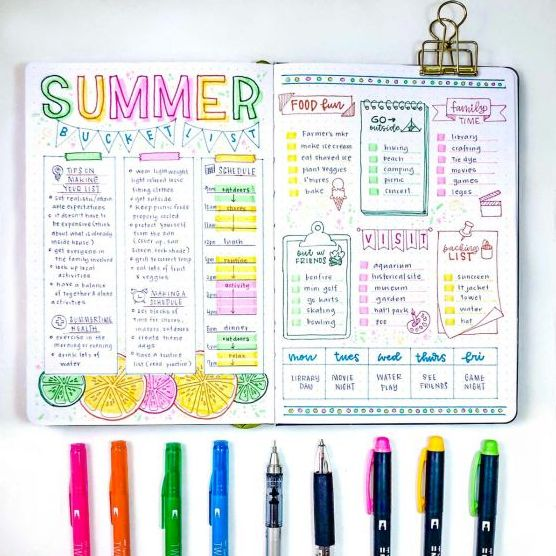 SUMMER
BUCKET LIST
TIPS ON
MAKING
YOUR LIST
set realistic/main
able expectations
it doesn't have to
be expensive (think
about what is already
inside house)
get everyone in
the family involved
look up local
activities
have a balance
of together & alone
activities
SUMMERTIME
HEALTH
exercise in the
morning or evening
drink lots of
water
wear lightweight,
light colored loose
fitting clothes
get outside
keep picnic foods
properly cooled
protect yourself
from the sun
(cover up, sun
screen, hat)
grill to correct temp
eat lots of fruit
& veggies
MAKING A
SCHEDULE
set blocks of
time for chores,
indoors, outdoors
create theme
days
have a routine
list
SCHEDULE
outdoors
chores
lunch
routine
activity
6pm dinner
outdoors
relax
FOOD fun
farmer's mkt
make ice cream
eat shaved ice
plant veggies
s'mores
bake
GO→
outside
hiking
beach
camping
picnic
concert
family
TIME
library
crafting
tie dye
movies
games
legos
out w/
FRIENDS
bonfire
mini golf
go karts
skating
bowling
VISIT
aquarium
historical site
museum
garden
nat'l park
zoo
packing
LIST
sunscreen
lt jacket
towel
water
hat
mon tues wed thurs fri
LIBRARY MOVIE WATER SEE GAME
DAY NIGHT PLAY FRIENDS NIGHT